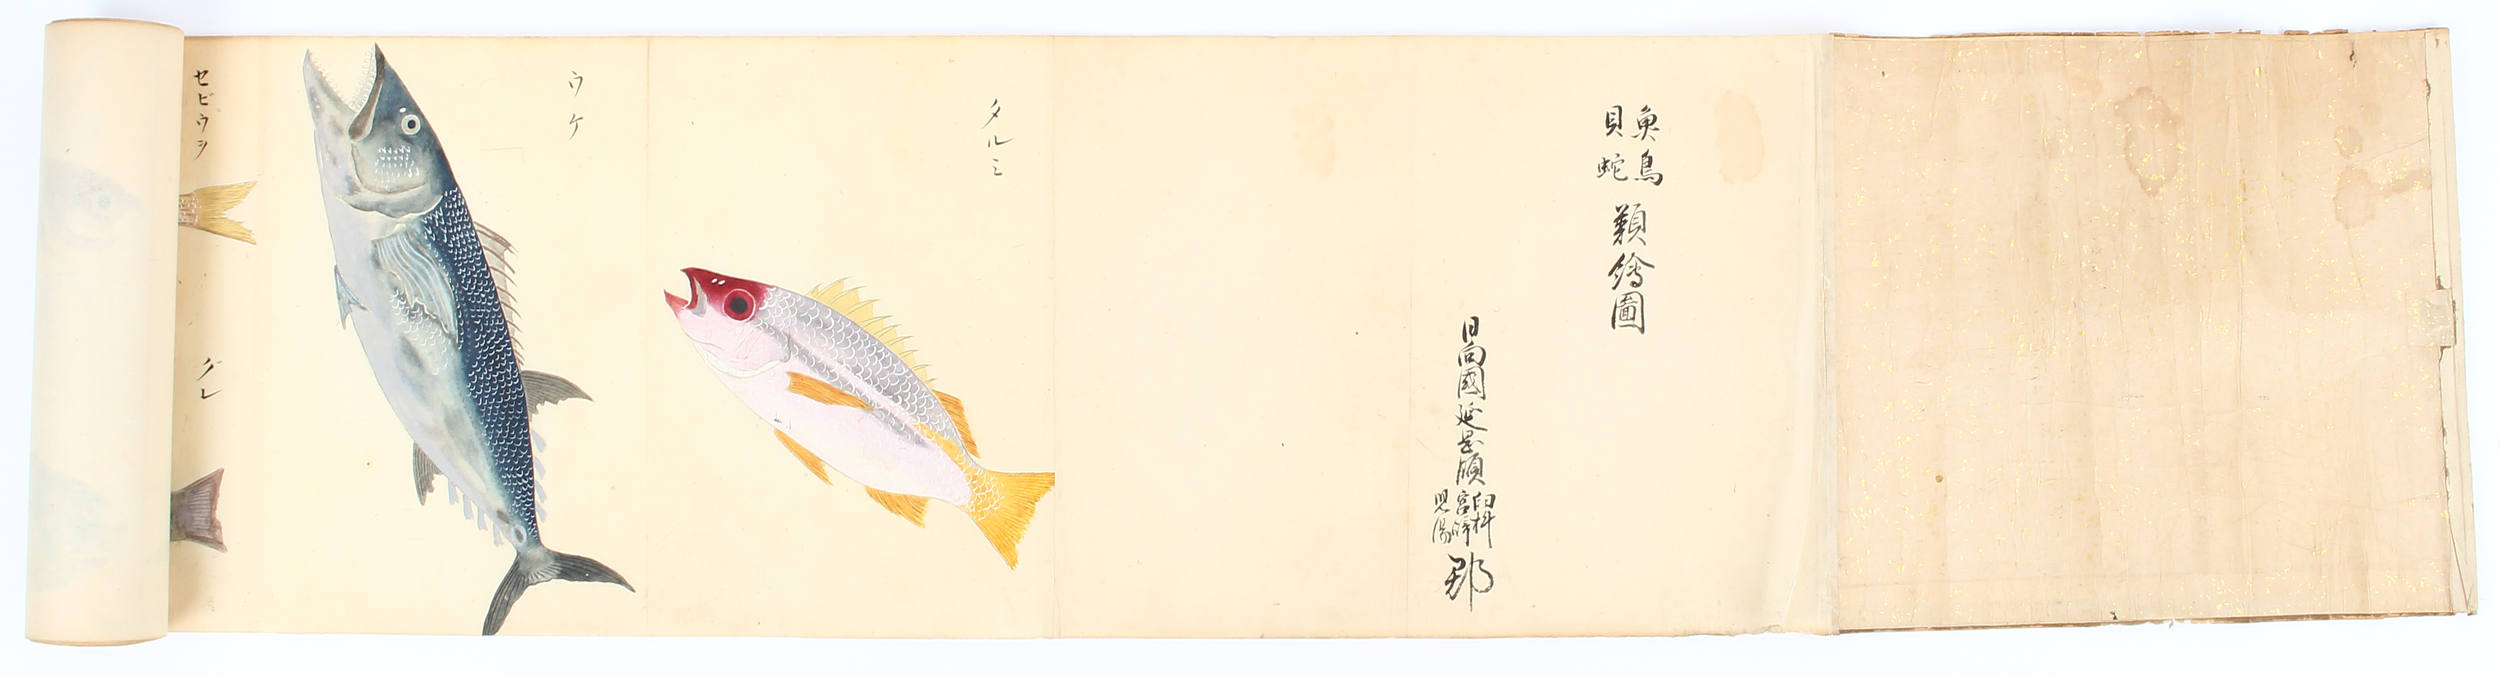 魚鳥
貝蛇
類繪圖
日向國延岡領
臼杵
宮崎
児湯
郡
タルミ
ウケ
セビウヲ
グレ